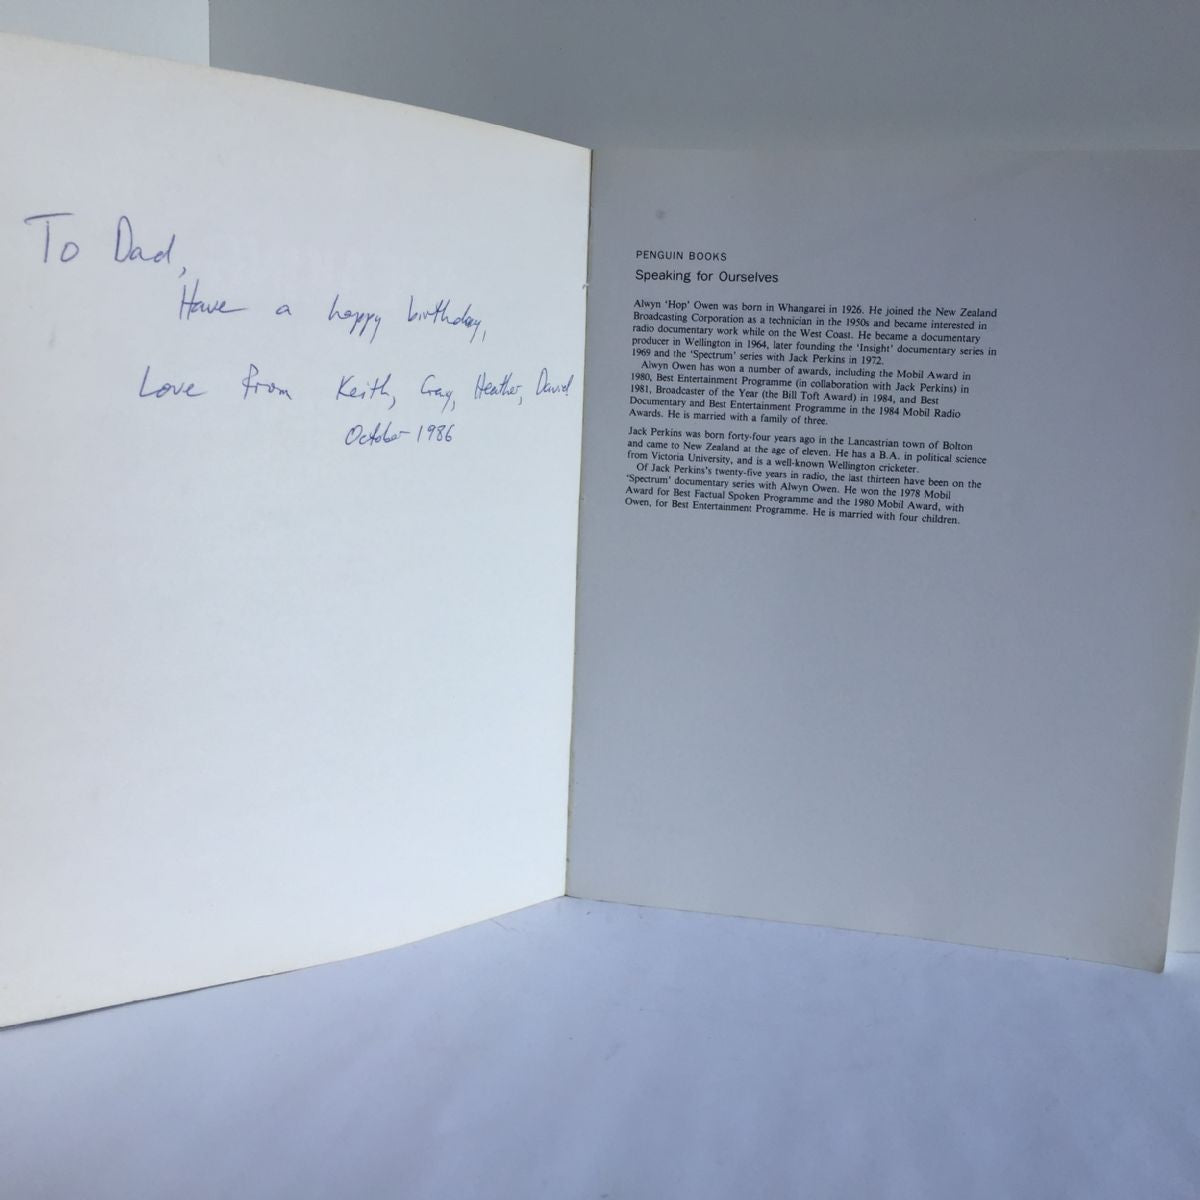 To Dad,
Have a happy birthday,
Love from Keith, Gray, Heather, David
October 1986
PENGUIN BOOKS
Speaking for Ourselves
Alwyn ‘Hop’ Owen was born in Whangarei in 1926. He joined the New Zealand
Broadcasting Corporation as a technician in the 1950s and became interested in
radio documentary work while on the West Coast. He became a documentary
producer in Wellington in 1964, later founding the ‘Insight’ documentary series in
1969 and the ‘Spectrum’ series with Jack Perkins in 1972.
Alwyn Owen has won a number of awards, including the Mobil Award in
1980, Best Entertainment Programme (in collaboration with Jack Perkins) in
1981, Broadcaster of the Year (the Bill Toft Award) in 1984, and Best
Documentary and Best Entertainment Programme in the 1984 Mobil Radio
Awards. He is married with a family of three.
Jack Perkins was born forty-four years ago in the Lancastrian town of Bolton
and came to New Zealand at the age of eleven. He has a B.A. in political science
from Victoria University, and is a well-known Wellington cricketer.
Of Jack Perkins's twenty-five years in radio, the last thirteen have been on the
‘Spectrum’ documentary series with Alwyn Owen. He won the 1978 Mobil
Award for Best Factual Spoken Programme and the 1980 Mobil Award, with
Owen, for Best Entertainment Programme. He is married with four children.